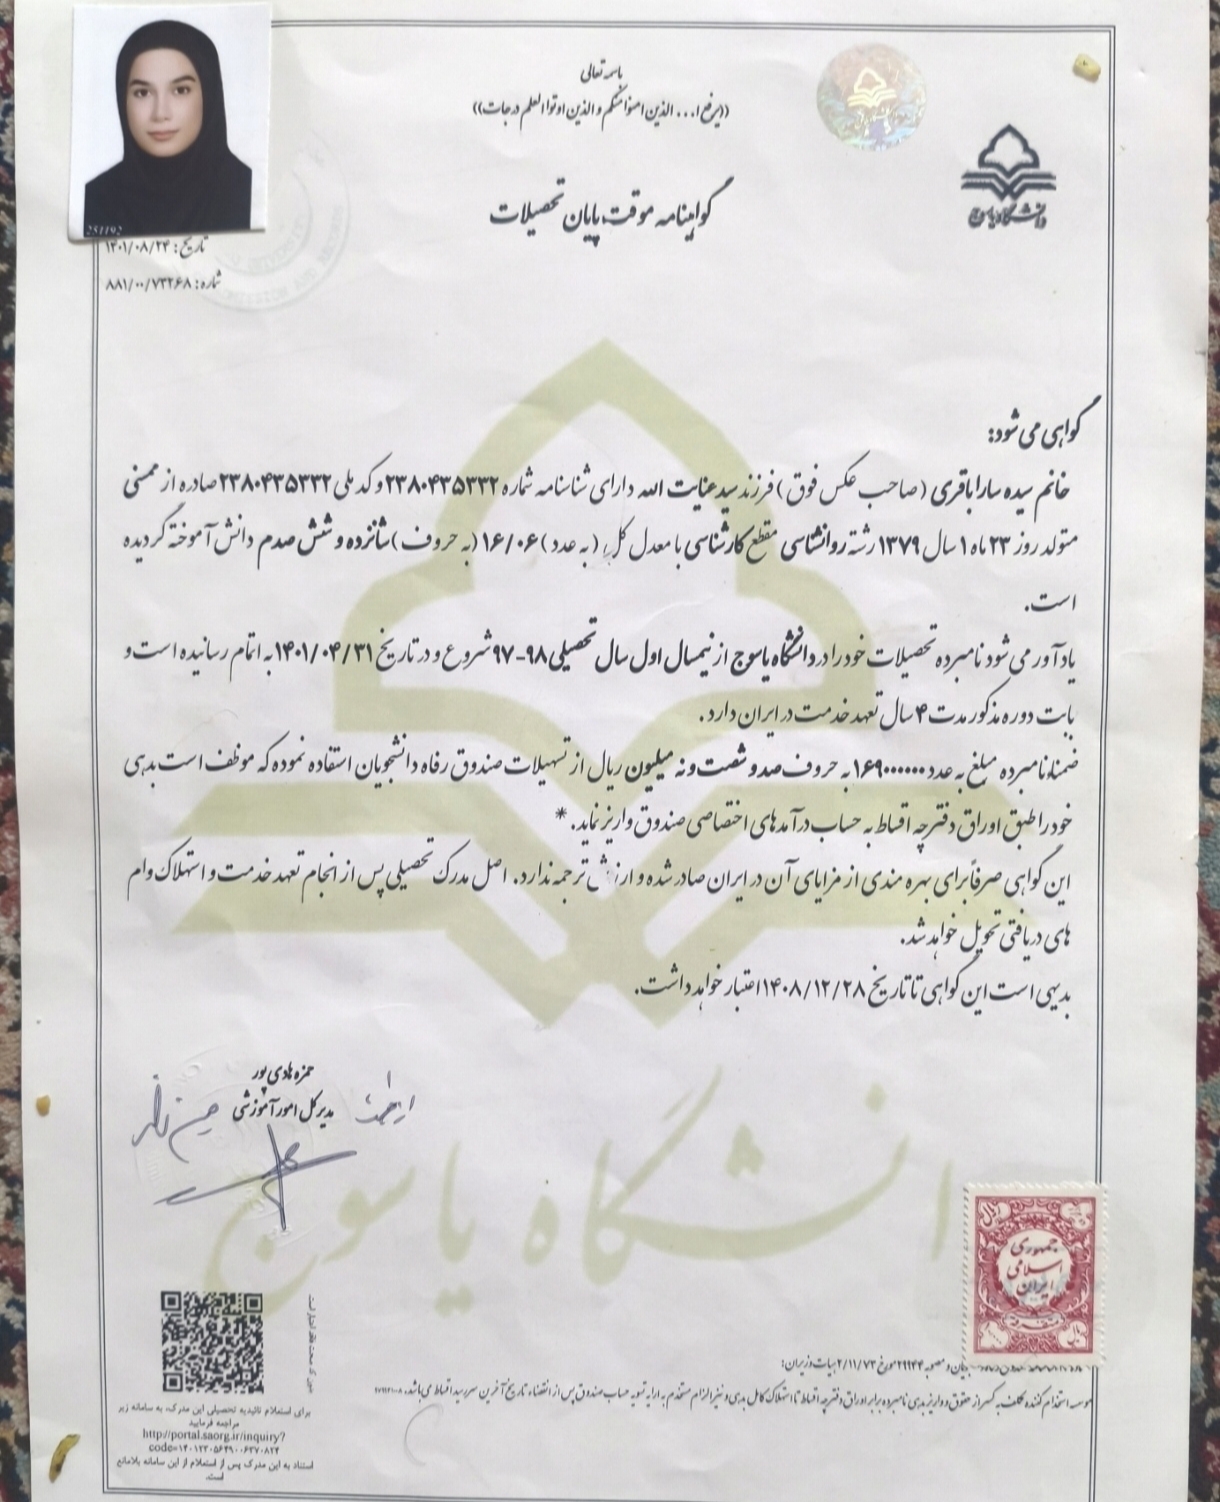 باسمه تعالی
((یرفع ا... الذین امنوا منکم و الذین اوتوا العلم درجات))
دانشگاه یاسوج
گواهینامه موقت پایان تحصیلات
251192
تاریخ: ۱۴۰۱/۰۸/۲۴
شماره: ۸۸۱/۰۰/۷۳۲۶۸
گواهی می شود:
خانم سیده سارا باقری (صاحب عکس فوق) فرزند سید عنایت الله دارای شناسنامه شماره ۲۳۸۰۴۳۵۳۳۲ و کد ملی ۲۳۸۰۴۳۵۳۳۲ صادره از ممسنی
متولد روز ۲۳ ماه ۱ سال ۱۳۷۹ رشته روانشناسی مقطع کارشناسی با معدل کل (به عدد) ۱۶/۰۶ (به حروف) شانزده و شش صدم دانش آموخته گردیده
است.
یادآور می شود نامبرده تحصیلات خود را در دانشگاه یاسوج از نیمسال اول سال تحصیلی ۹۸-۹۷ شروع و در تاریخ ۱۴۰۱/۰۴/۳۱ به اتمام رسانیده است و
بابت دوره مذکور مدت ۴ سال تعهد خدمت در ایران دارد.
ضمنا نامبرده مبلغ به عدد ۱۶۹۰۰۰۰۰۰ به حروف صد و شصت و نه میلیون ریال از تسهیلات صندوق رفاه دانشجویان استفاده نموده که موظف است بدهی
خود را طبق اوراق دفترچه اقساط به حساب درآمدهای اختصاصی صندوق واریز نماید. *
این گواهی صرفاً برای بهره مندی از مزایای آن در ایران صادر شده و ارزش ترجمه ندارد. اصل مدرک تحصیلی پس از انجام تعهد خدمت و استهلاک وام
های دریافتی تحویل خواهد شد.
بدیهی است این گواهی تا تاریخ ۱۴۰۸/۱۲/۲۸ اعتبار خواهد داشت.
حمزه هادی پور
مدیر کل امور آموزشی
دانشگاه یاسوج
جمهوری
اسلامی
ایران
متفرقه
ریال
و مصوبه ۲۹۹۴۴ مورخ ۲/۱۱/۷۳ هیات وزیران:
موسسه استخدام کننده مکلف به کسر از حقوق و واریز بدهی نامبرده برابر اوراق دفترچه اقساط تا استهلاک کامل بدهی و نیز الزام مستخدم به ارایه تسویه حساب صندوق پس از انقضاء تاریخ آخرین سررسید اقساط می باشد.
برای استعلام تائیدیه تحصیلی این مدرک، به سامانه زیر
مراجعه فرمایید
http://portal.saorg.ir/inquiry?
code=۱۴۰۱۲۳۰۵۶۴۹۰۰۶۳۷۰۸۲۴
استناد به این مدرک پس از استعلام از این سامانه بلامانع
است.